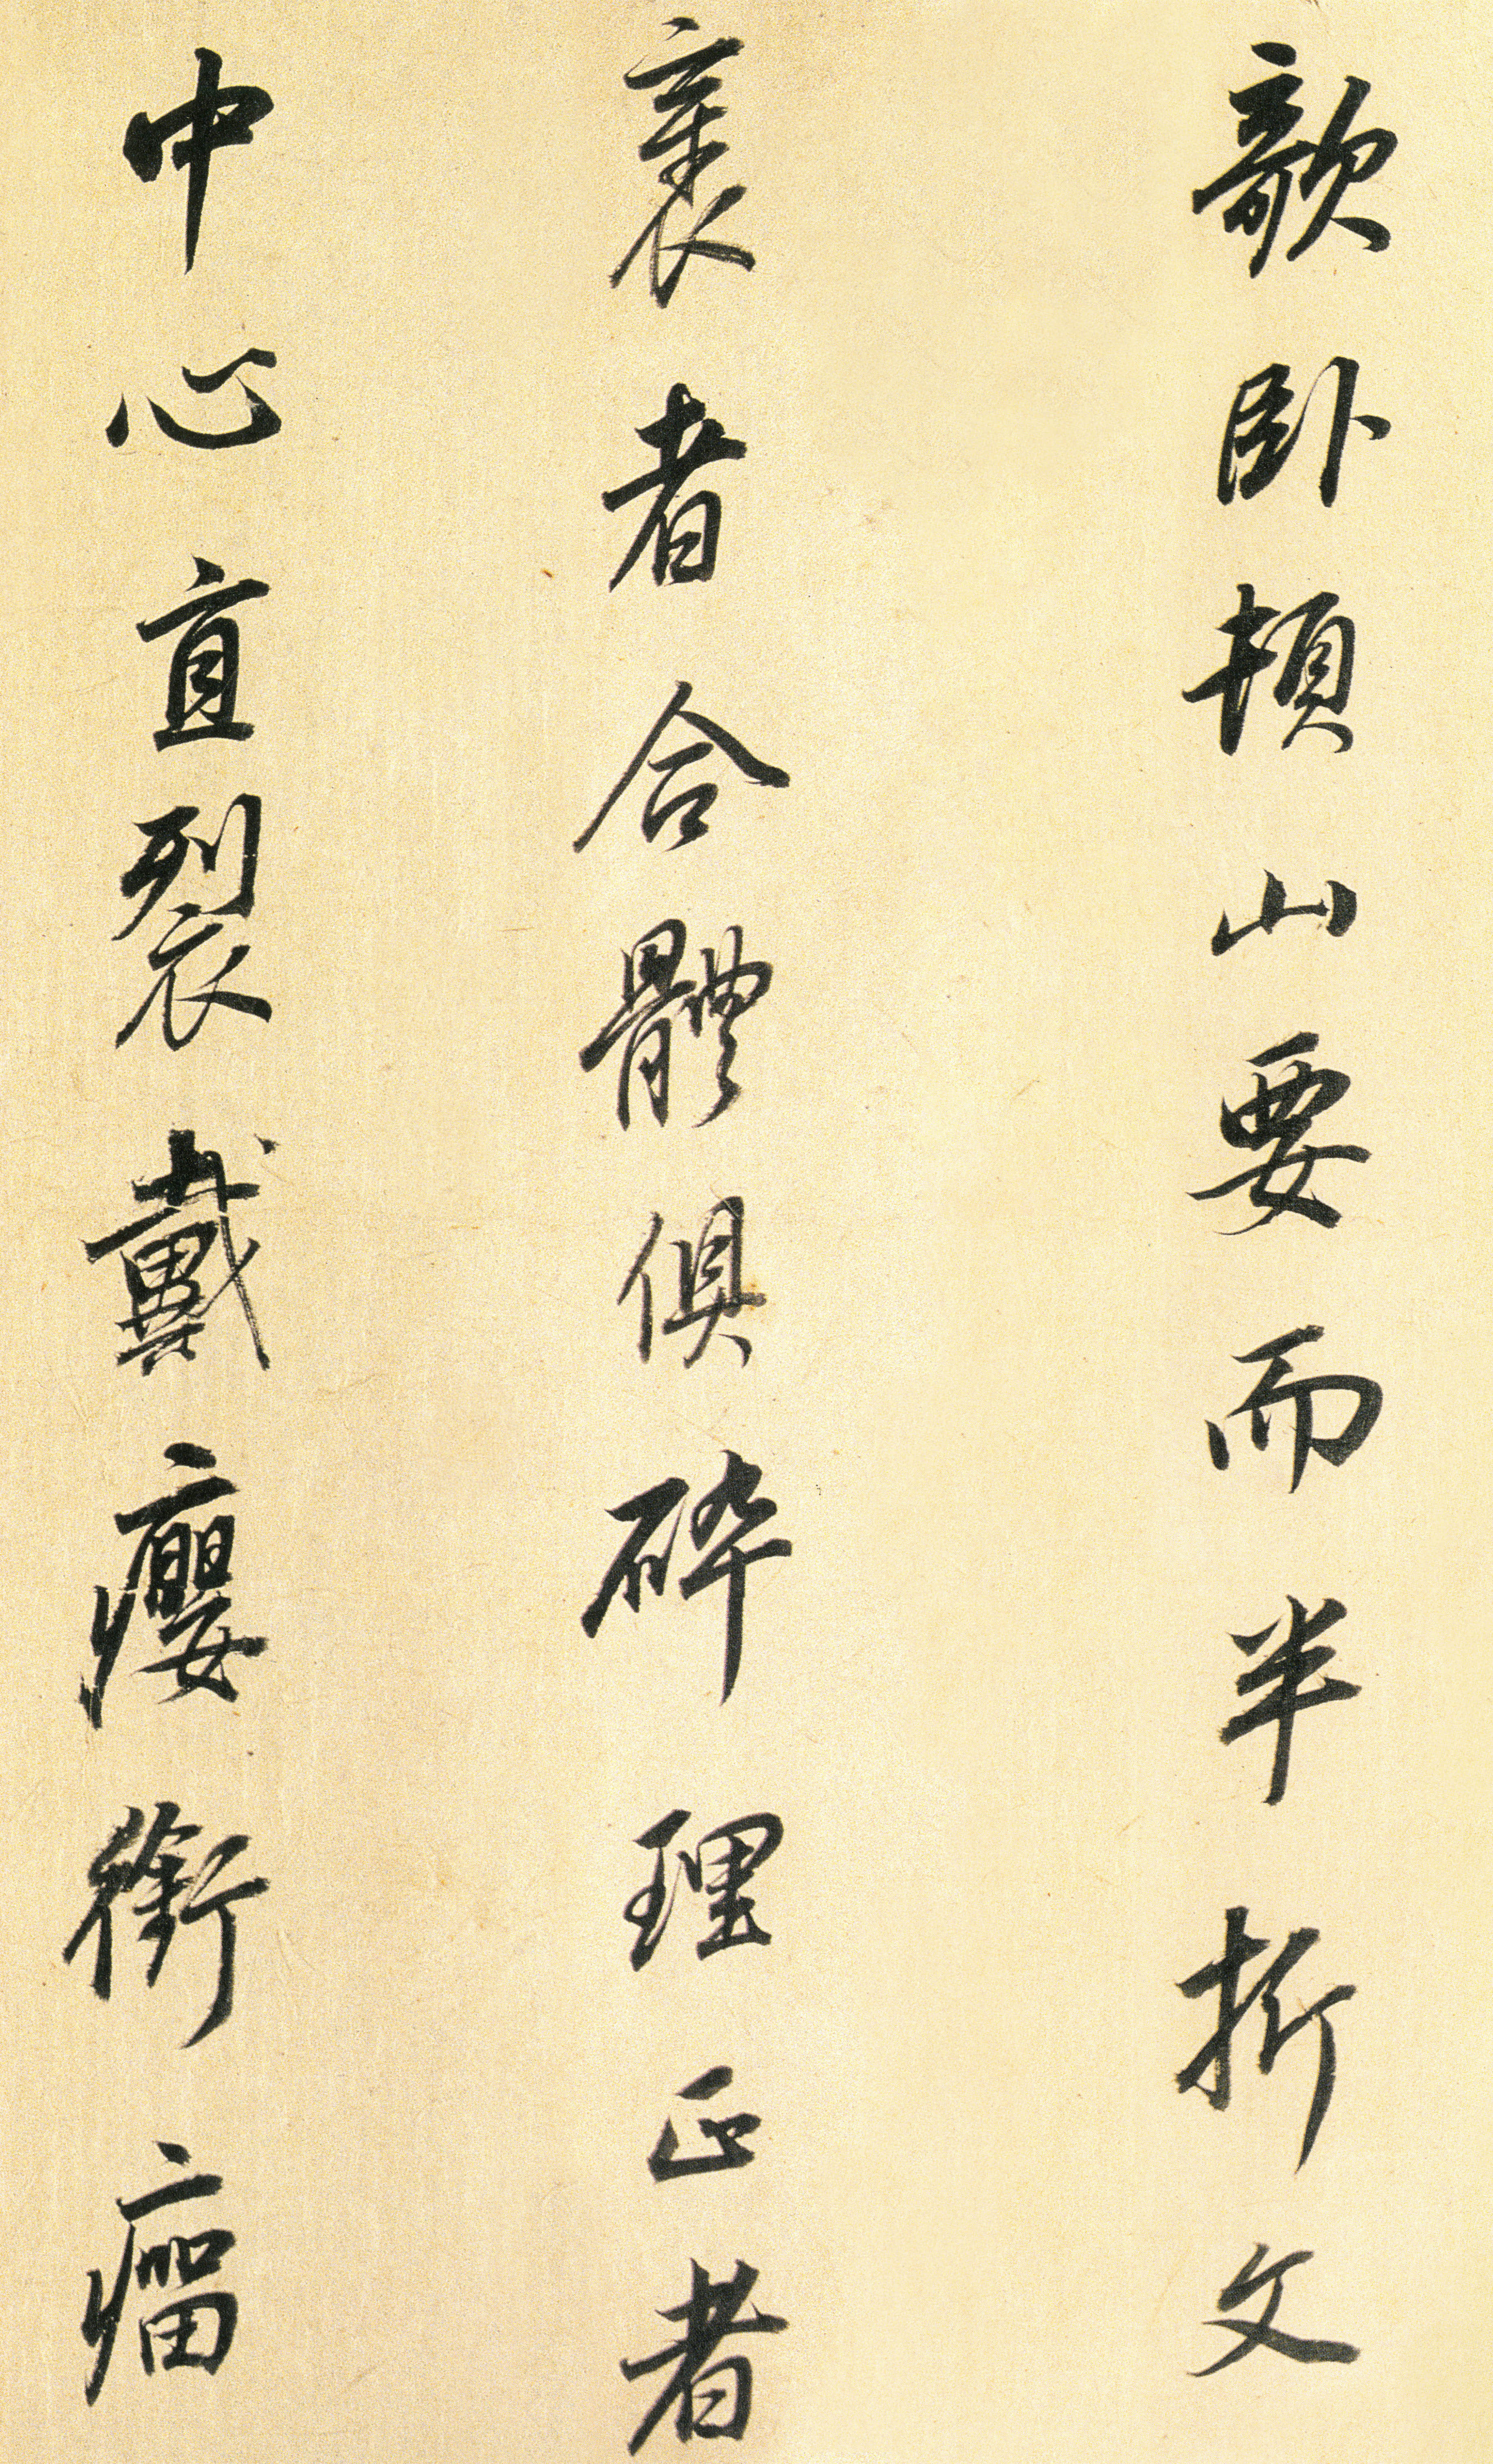 欹卧頓山要而半折文
裹者合體俱碎理正者
中心直裂戴癭銜瘤